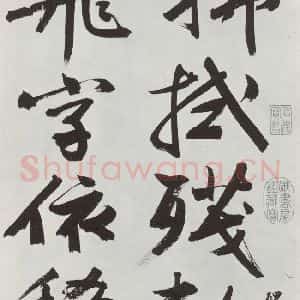 拂拭殘
飛字依稀
Shufawang.CN